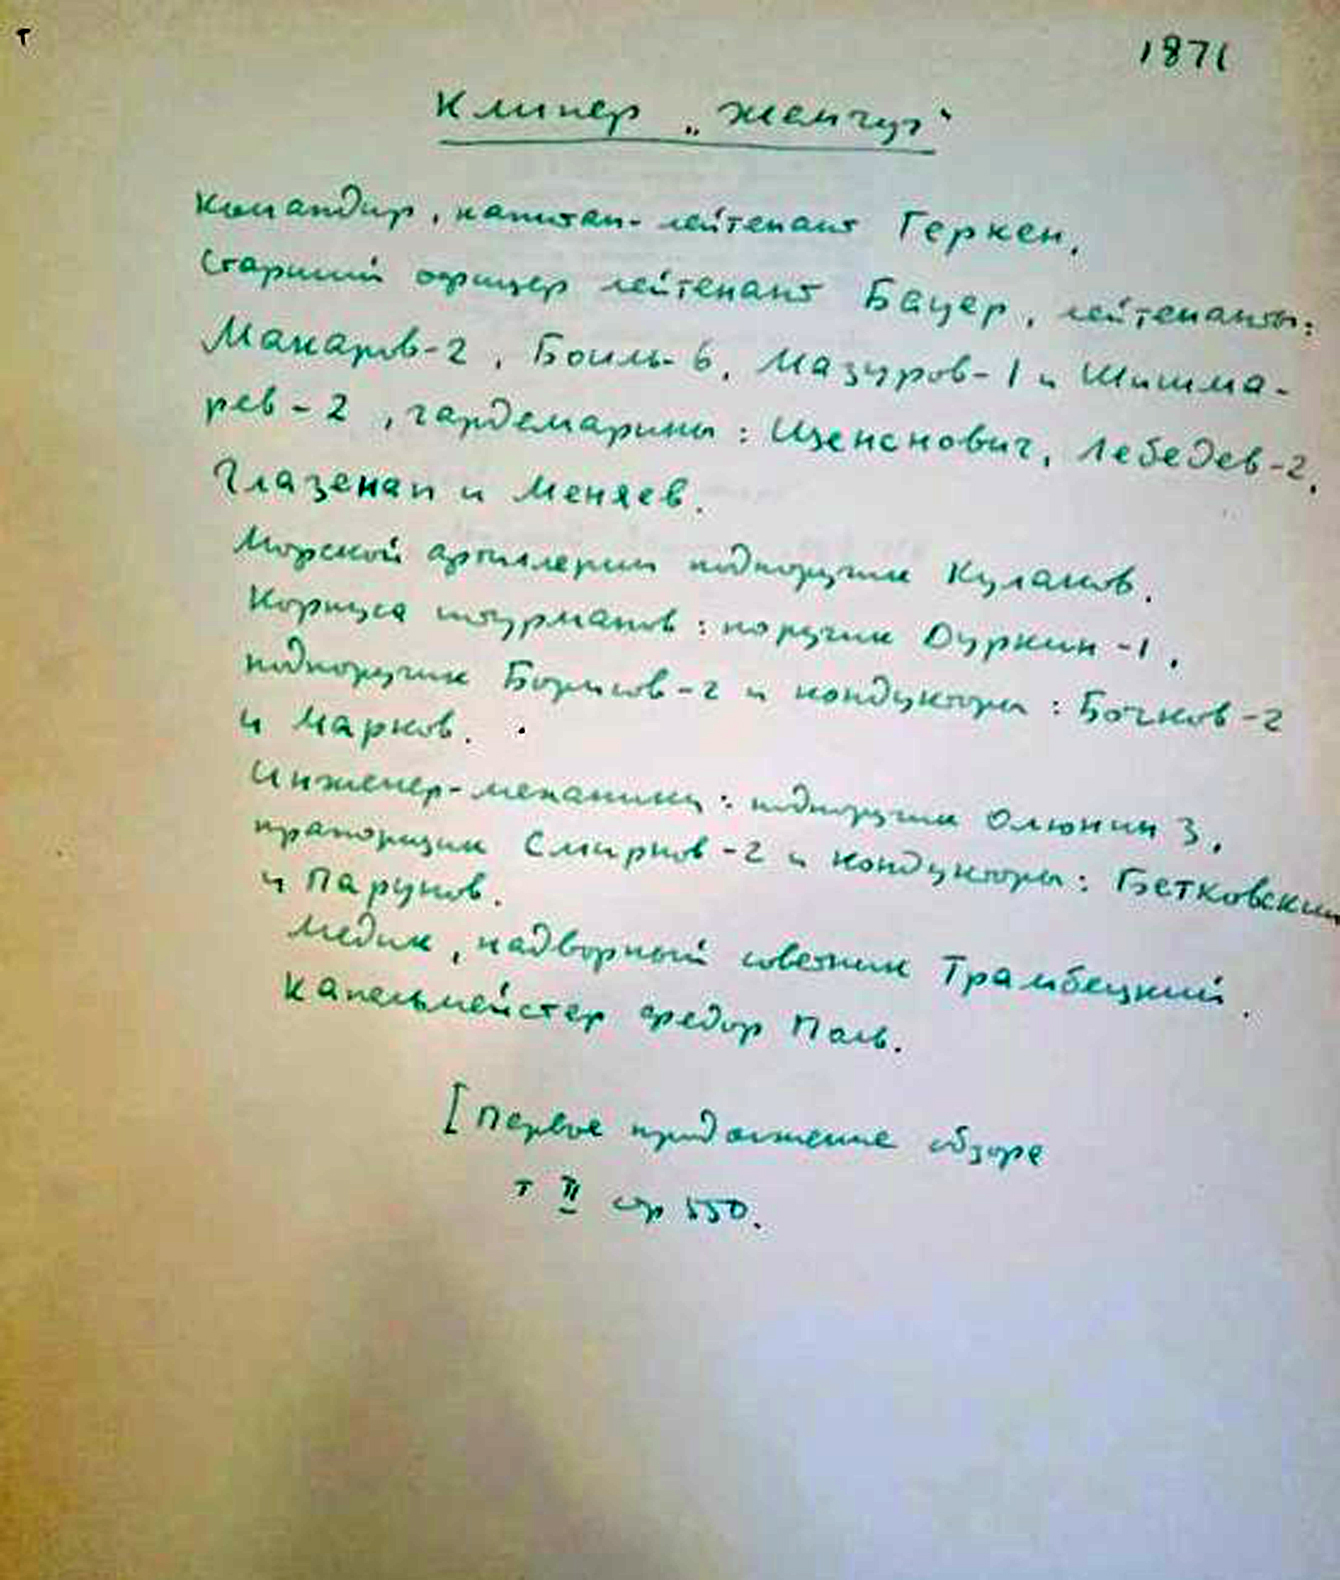 т
1871
Клипер „Жемчуг“
Командир, капитан-лейтенант Геркен,
Старший офицер лейтенант Бауер, лейтенанты:
Макаров-2, Боиль-6, Мазуров-1 и Шишма-
рев-2, гардемарины: Щенснович, Лебедев-2,
Глазенап и Меняев.
Морской артиллерии подпоручик Кулаков.
Корпуса штурманов: поручик Дуркин-1,
подпоручик Борисов-2 и кондукторы: Бочков-2
и Марков.
Инженер-механики: подпоручик Олюнин 3,
прапорщик Смирнов-2 и кондукторы: Бетковский
и Парунов.
Медик, надворный советник Трамбецкий.
Капельмейстер Федор Паль.
[Первое продолжение обзора
т II стр 550.